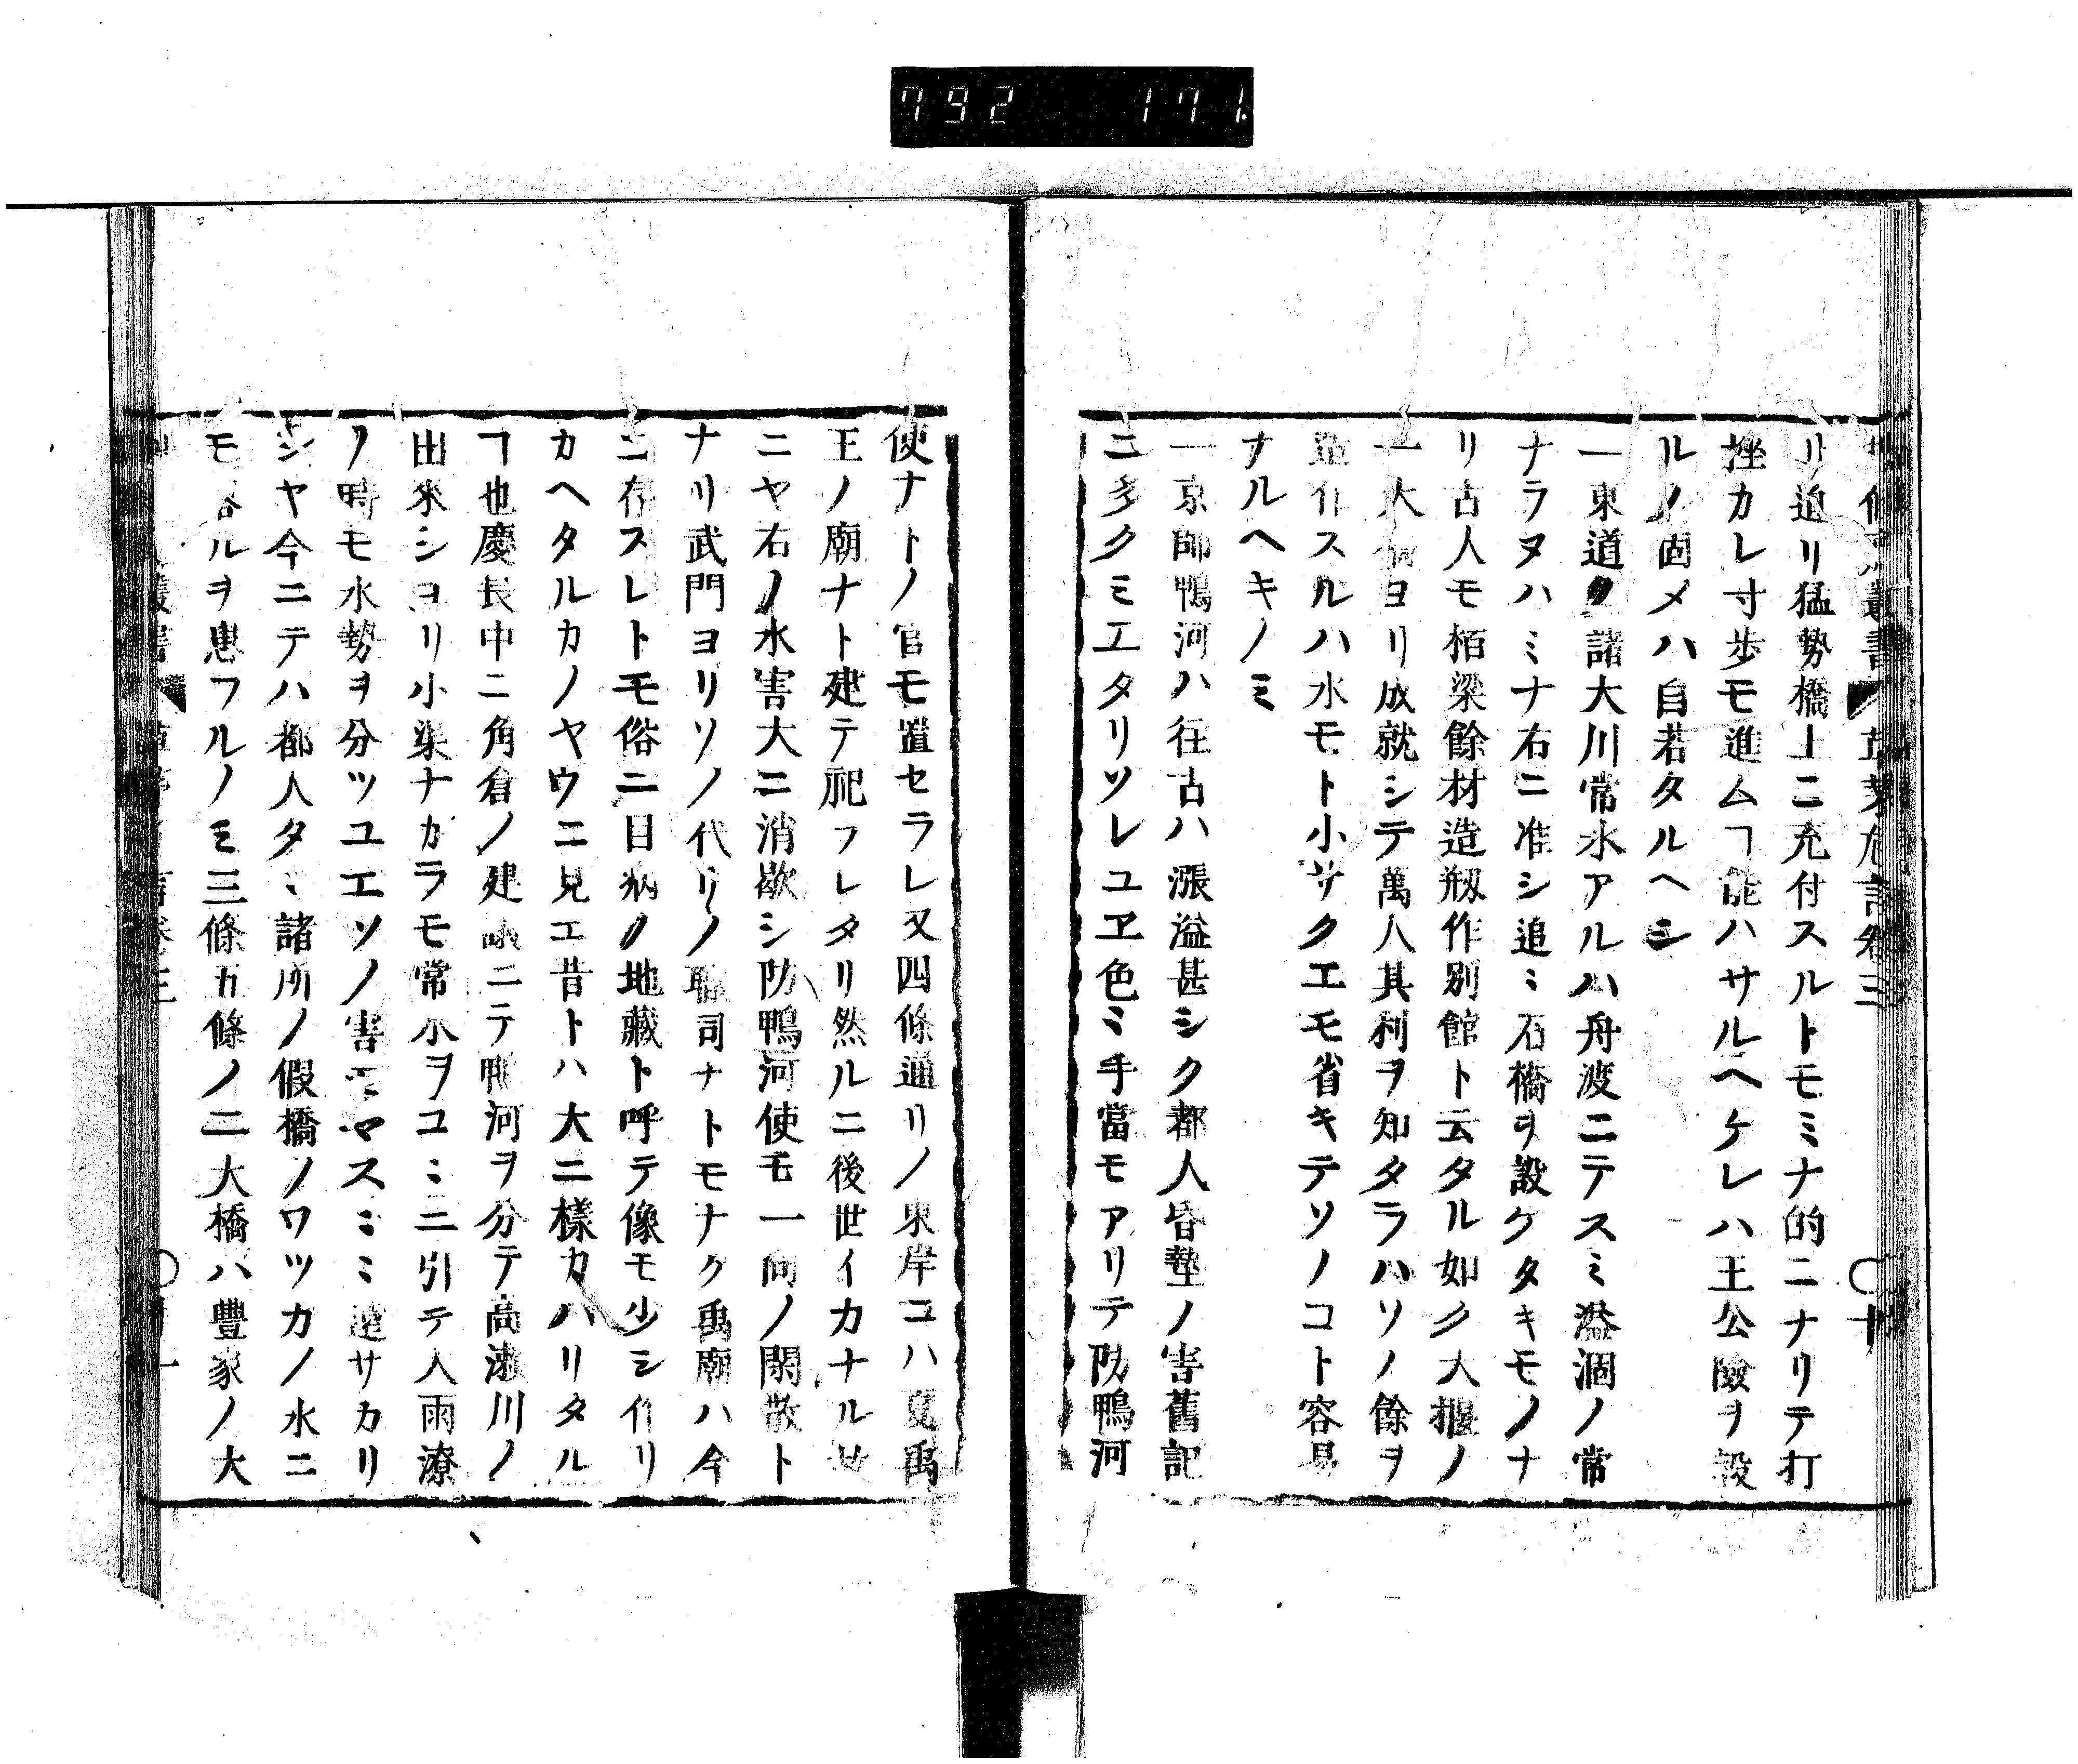 792 171.
リ迫リ猛勢橋上ニ充付スルトモミナ的ニナリテ打
挫カレ寸歩モ進ムヿ能ハサルヘケレハ王公險ヲ設
ルノ固メハ自若タルヘシ
一東道ノ諸大川常水アルハ舟渡ニテスミ溢涸ノ常
ナラヌハミナ右ニ准シ追ミ石橋ヲ設ケタキモノナ
リ古人モ栢梁餘材造剏作別館ト云タル如ク大堰ノ
一大ヨリ成就シテ萬人其利ヲ知タラハソノ餘ヲ
造作スルハ水モト小サクエモ省キテソノコト容易
ナルヘキノミ
一京師鴨河ハ往古ハ漲溢甚シク都人昏墊ノ害舊記
ニ多クミエタリソレユヱ色ミ手當モアリテ防鴨河
使ナトノ官モ置セラレ又四條通リノ東岸コハ夏禹
王ノ廟ナト建テ祀フレタリ然ルニ後世イカナル
ニヤ右ノ水害大ニ消歇シ防鴨河使モ一向ノ閑散ト
ナリ武門ヨリソノ代リノ職司ナトモナク禹廟ハ今
ニ存スレトモ俗ニ目病ノ地藏ト呼テ像モ少シ作リ
カヘタルカノヤウニ見エ昔トハ大ニ樣カハリタル
ヿ也慶長中ニ角倉ノ建議ニテ鴨河ヲ分テ高瀬川ノ
出來シヨリ小渠ナカラモ常水ヲコミニ引テ大雨潦
ノ時モ水勢ヲ分ツユエソノ害マスミミ遠サカリ
シヤ今ニテハ都人タミ諸所ノ假橋ノワツカノ水ニ
モルヲ患フルノミ三條五條ノ二大橋ハ豐家ノ大